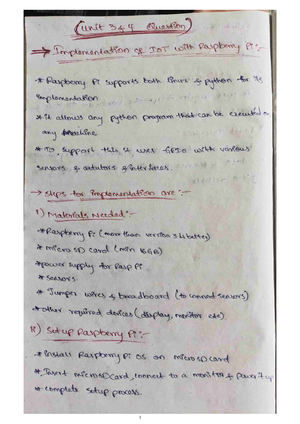 (Unit 3 & 4 Question)
⇒ Implementation of IOT with Raspberry Pi :-
* Raspberry Pi supports both linux & python for its
implementation
* it allows any python program that can be executed on
any machine
* To support this it uses GPIO with various
sensors & actutors & interfaces.
→ steps for implementation are :-
1) Materials Needed :-
* Raspberry Pi (more than version 3 is better)
* microSD card (min 16GB)
* power supply for Rasp Pi
* sensors
* Jumper wires & breadboard (to connect sensors)
* other required devices (display, monitor etc)
2) Setup Raspberry Pi :-
* install Raspberry Pi OS on microSD card
* Insert microSD card, connect to a monitor & power it up
* complete setup process.
1